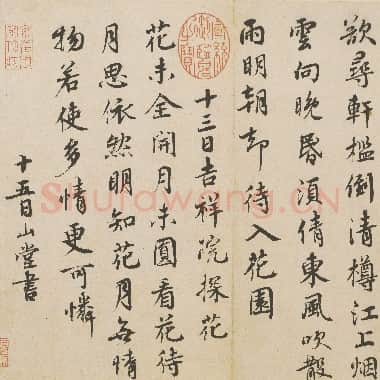 欲尋軒檻倒清樽江上烟
雲向晚昏須倩東風吹散
雨明朝却待入花園
十三日吉祥院探花
花未全開月未圓看花待
月思依然明知花月無情
物若使多情更可憐
十五日山堂書
Shufawang.CN